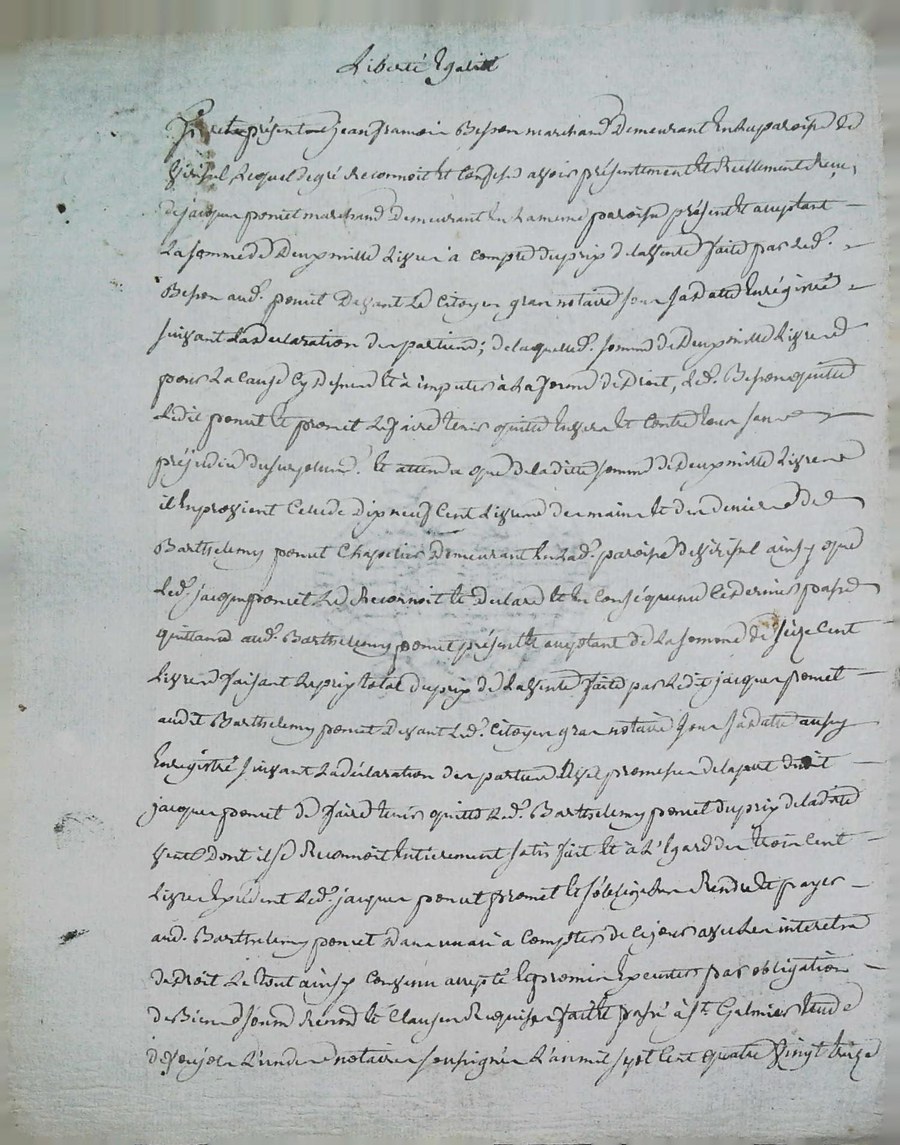 Liberté Egalité
fut présent jean francois Besson marchand Demeurant En La paroisse de
Viricel Lequel de gré Reconnoit et Confesse avoir présentement et réellement Reçu
de jacques poncet marchand Demeurant En La meme paroisse présent et acceptant
La somme de Deux mille Livres a compte du prix de la vente faite par led.
Besson aud. poncet Devant Le Citoyen gras notaire sous sa date Enrégistré
suivant La declaration des parties; de laquelle somme de Deux mille Livres
pour La Cause Cy dessus et à imputer à La forme de Droit, led. Besson quitte
Ledit poncet et promet Le faire tenir quitte Envers et Contre tous sans
préjudice du surplus. Et attendu que de la dite somme de Deux mille Livres
il En provient Celle de Dix neuf Cent Livres des mains et des deniers de
Barthelemy poncet Chapelier Demeurant En Lad. paroisse de Viricel ainsy que
Led. jacques poncet Le Reconnoit et declare et En Conséquence Ce dernier passe
quittance aud. Barthelemy poncet présent et acceptant de La somme de seize Cent
Livres faisant Le prix total du prix de La vente faite par Ledit jacques poncet
audit Barthelemy poncet Devant Led. Citoyen gras notaire sous sa date aussy
Enregistré suivant La déclaration des parties avec promesse de la part dudit
jacques poncet de faire tenir quitte Led. Barthelemy poncet du prix de la dite
vente Dont il se Reconnoit Entierement satisfait Et à L'Egard des trois Cent
Livres Excédent Led. jacques poncet promet et s'oblige les Rendre et payer
aud. Barthelemy poncet Dans un an a Compter de Ce jour avec Les interets
de Droit Le tout ainsy Convenu accepté et promis Executer par obligation
de Biens soum. Renon. et Clauses Requises fait et passé à St. Galmier Etude
de L'un des notaires soussignés L'an mil sept Cent quatre vingt treize